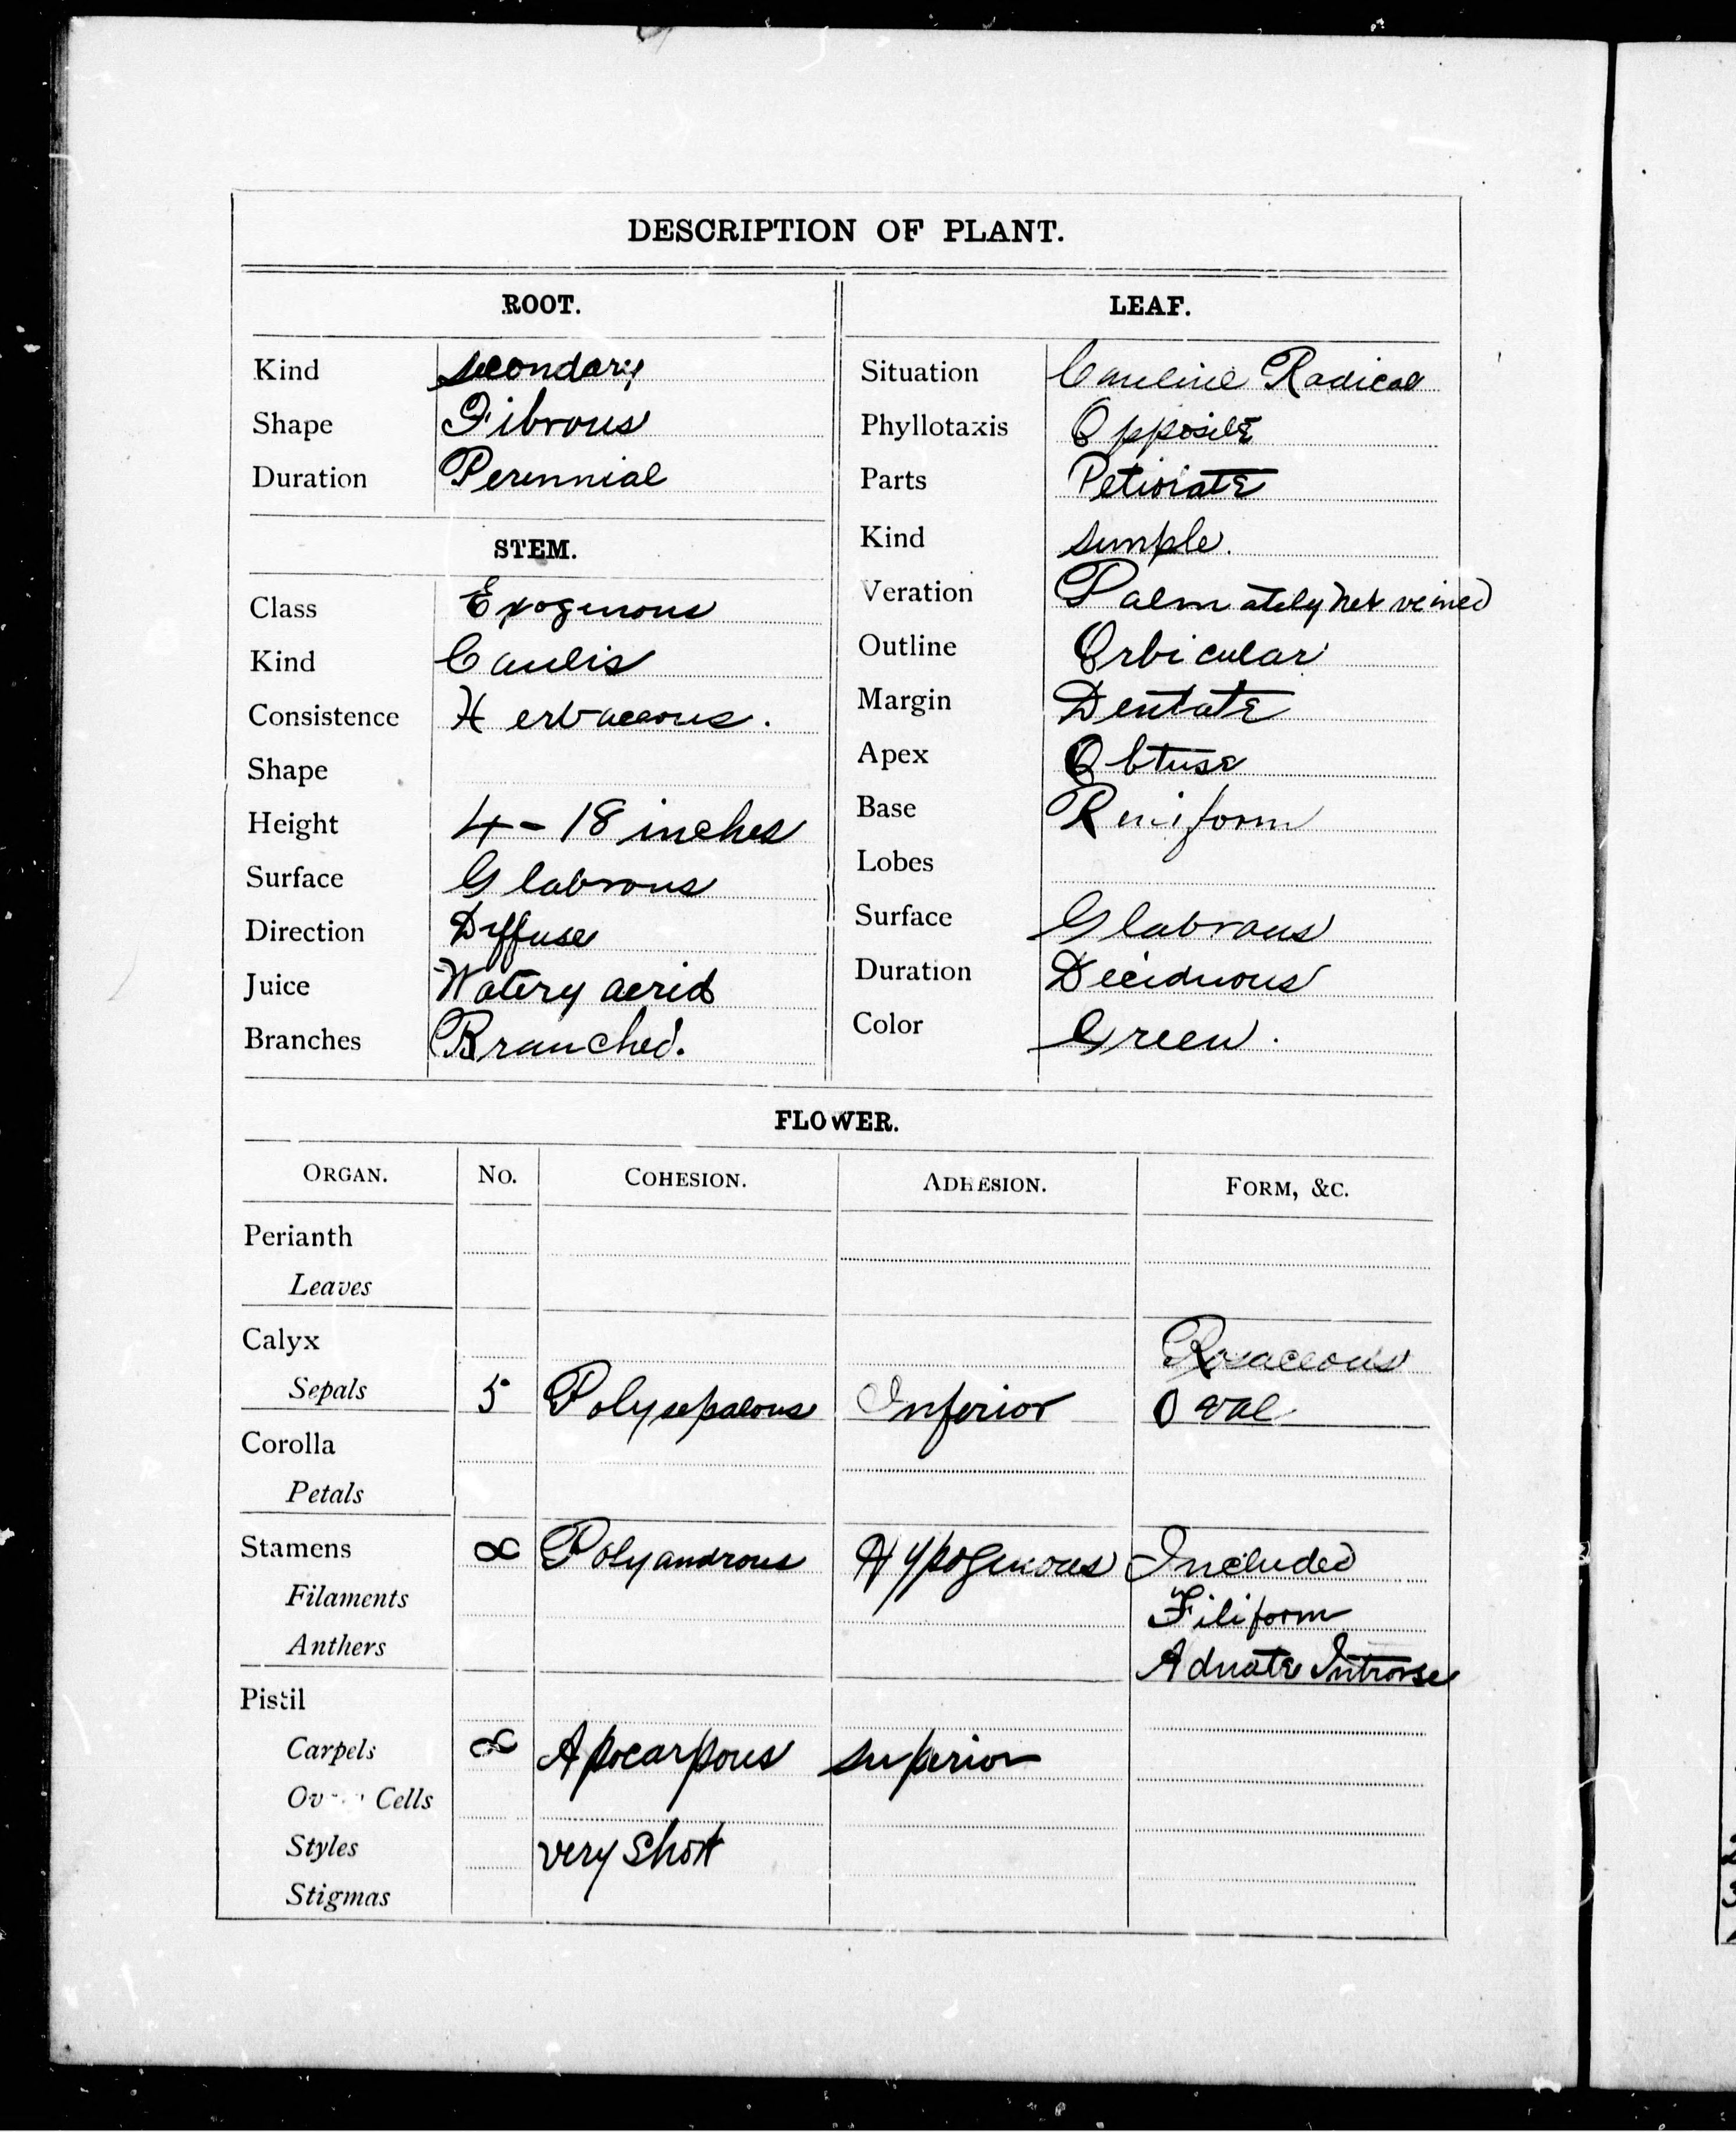 DESCRIPTION OF PLANT.
ROOT.
Kind secondary
Shape Fibrous
Duration Perennial
STEM.
Class Exogenous
Kind Caulis
Consistence Herbaceous.
Shape
Height 4-18 inches
Surface Glabrous
Direction Diffuse
Juice Watery acrid
Branches Branched.
LEAF.
Situation Cauline Radical
Phyllotaxis Opposite
Parts Petiolate
Kind simple.
Veration Palmately Net veined
Outline Orbicular
Margin Dentate
Apex Obtuse
Base Reniform
Lobes
Surface Glabrous
Duration Deciduous
Color Green.
FLOWER.
ORGAN. NO. COHESION. ADHESION. FORM, &C.
Perianth
Leaves
Calyx Rosaceous
Sepals 5 Polysepalous Inferior Oval
Corolla
Petals
Stamens ∞ Polyandrous Hypogenous Included
Filaments Filiform
Anthers Adnate Introrse
Pistil
Carpels ∞ Apocarpous superior
Cells
Styles very short
Stigmas